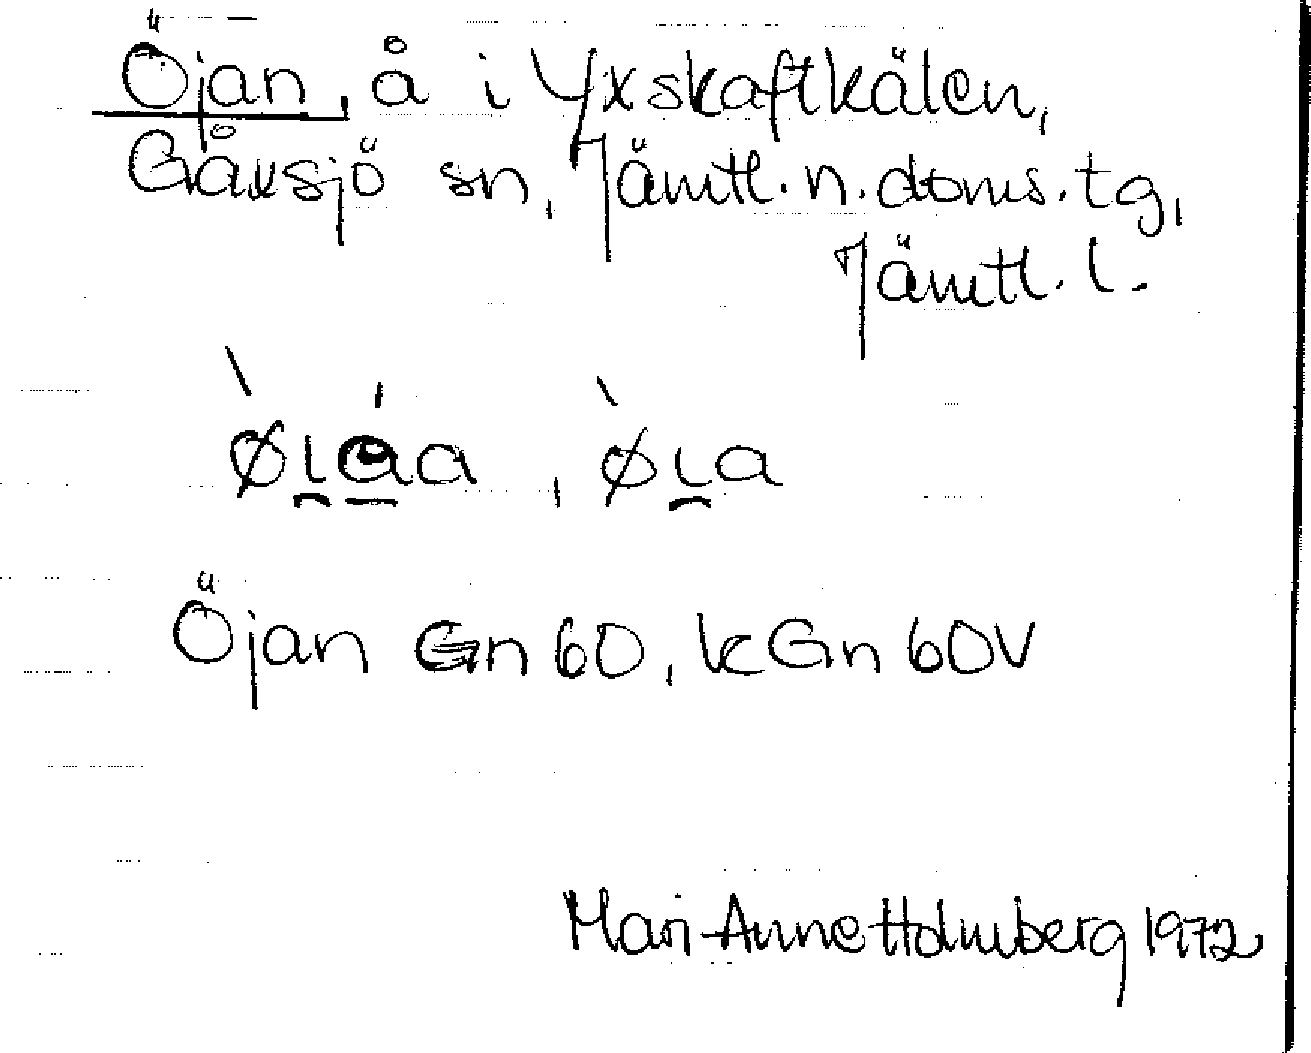 Öjan, å i Yxskaftkälen,
Gåxsjö sn, Jämtl. n. doms. tg,
Jämtl. l.
Öjan Gn 60, kGn 60V
Mari-Anne Holmberg 1972